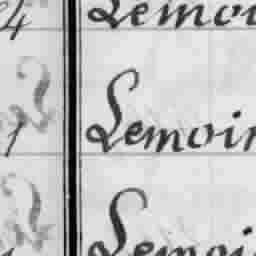 4 Lemoi
1 Lemoin
Lemoi